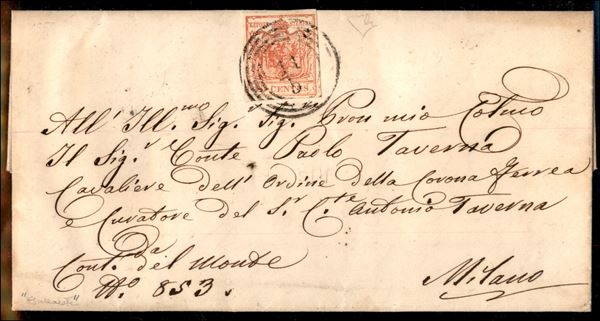 CENTES
11
All' Ill.mo Sig. Sig. Pron mio Colmo
Il Sig.r Conte Paolo Taverna
Cavaliere dell' Ordine della Corona Ferrea
e Curatore del S.r C.te Antonio Taverna
Da
Cont.a del Monte
N.o 853.
Milano